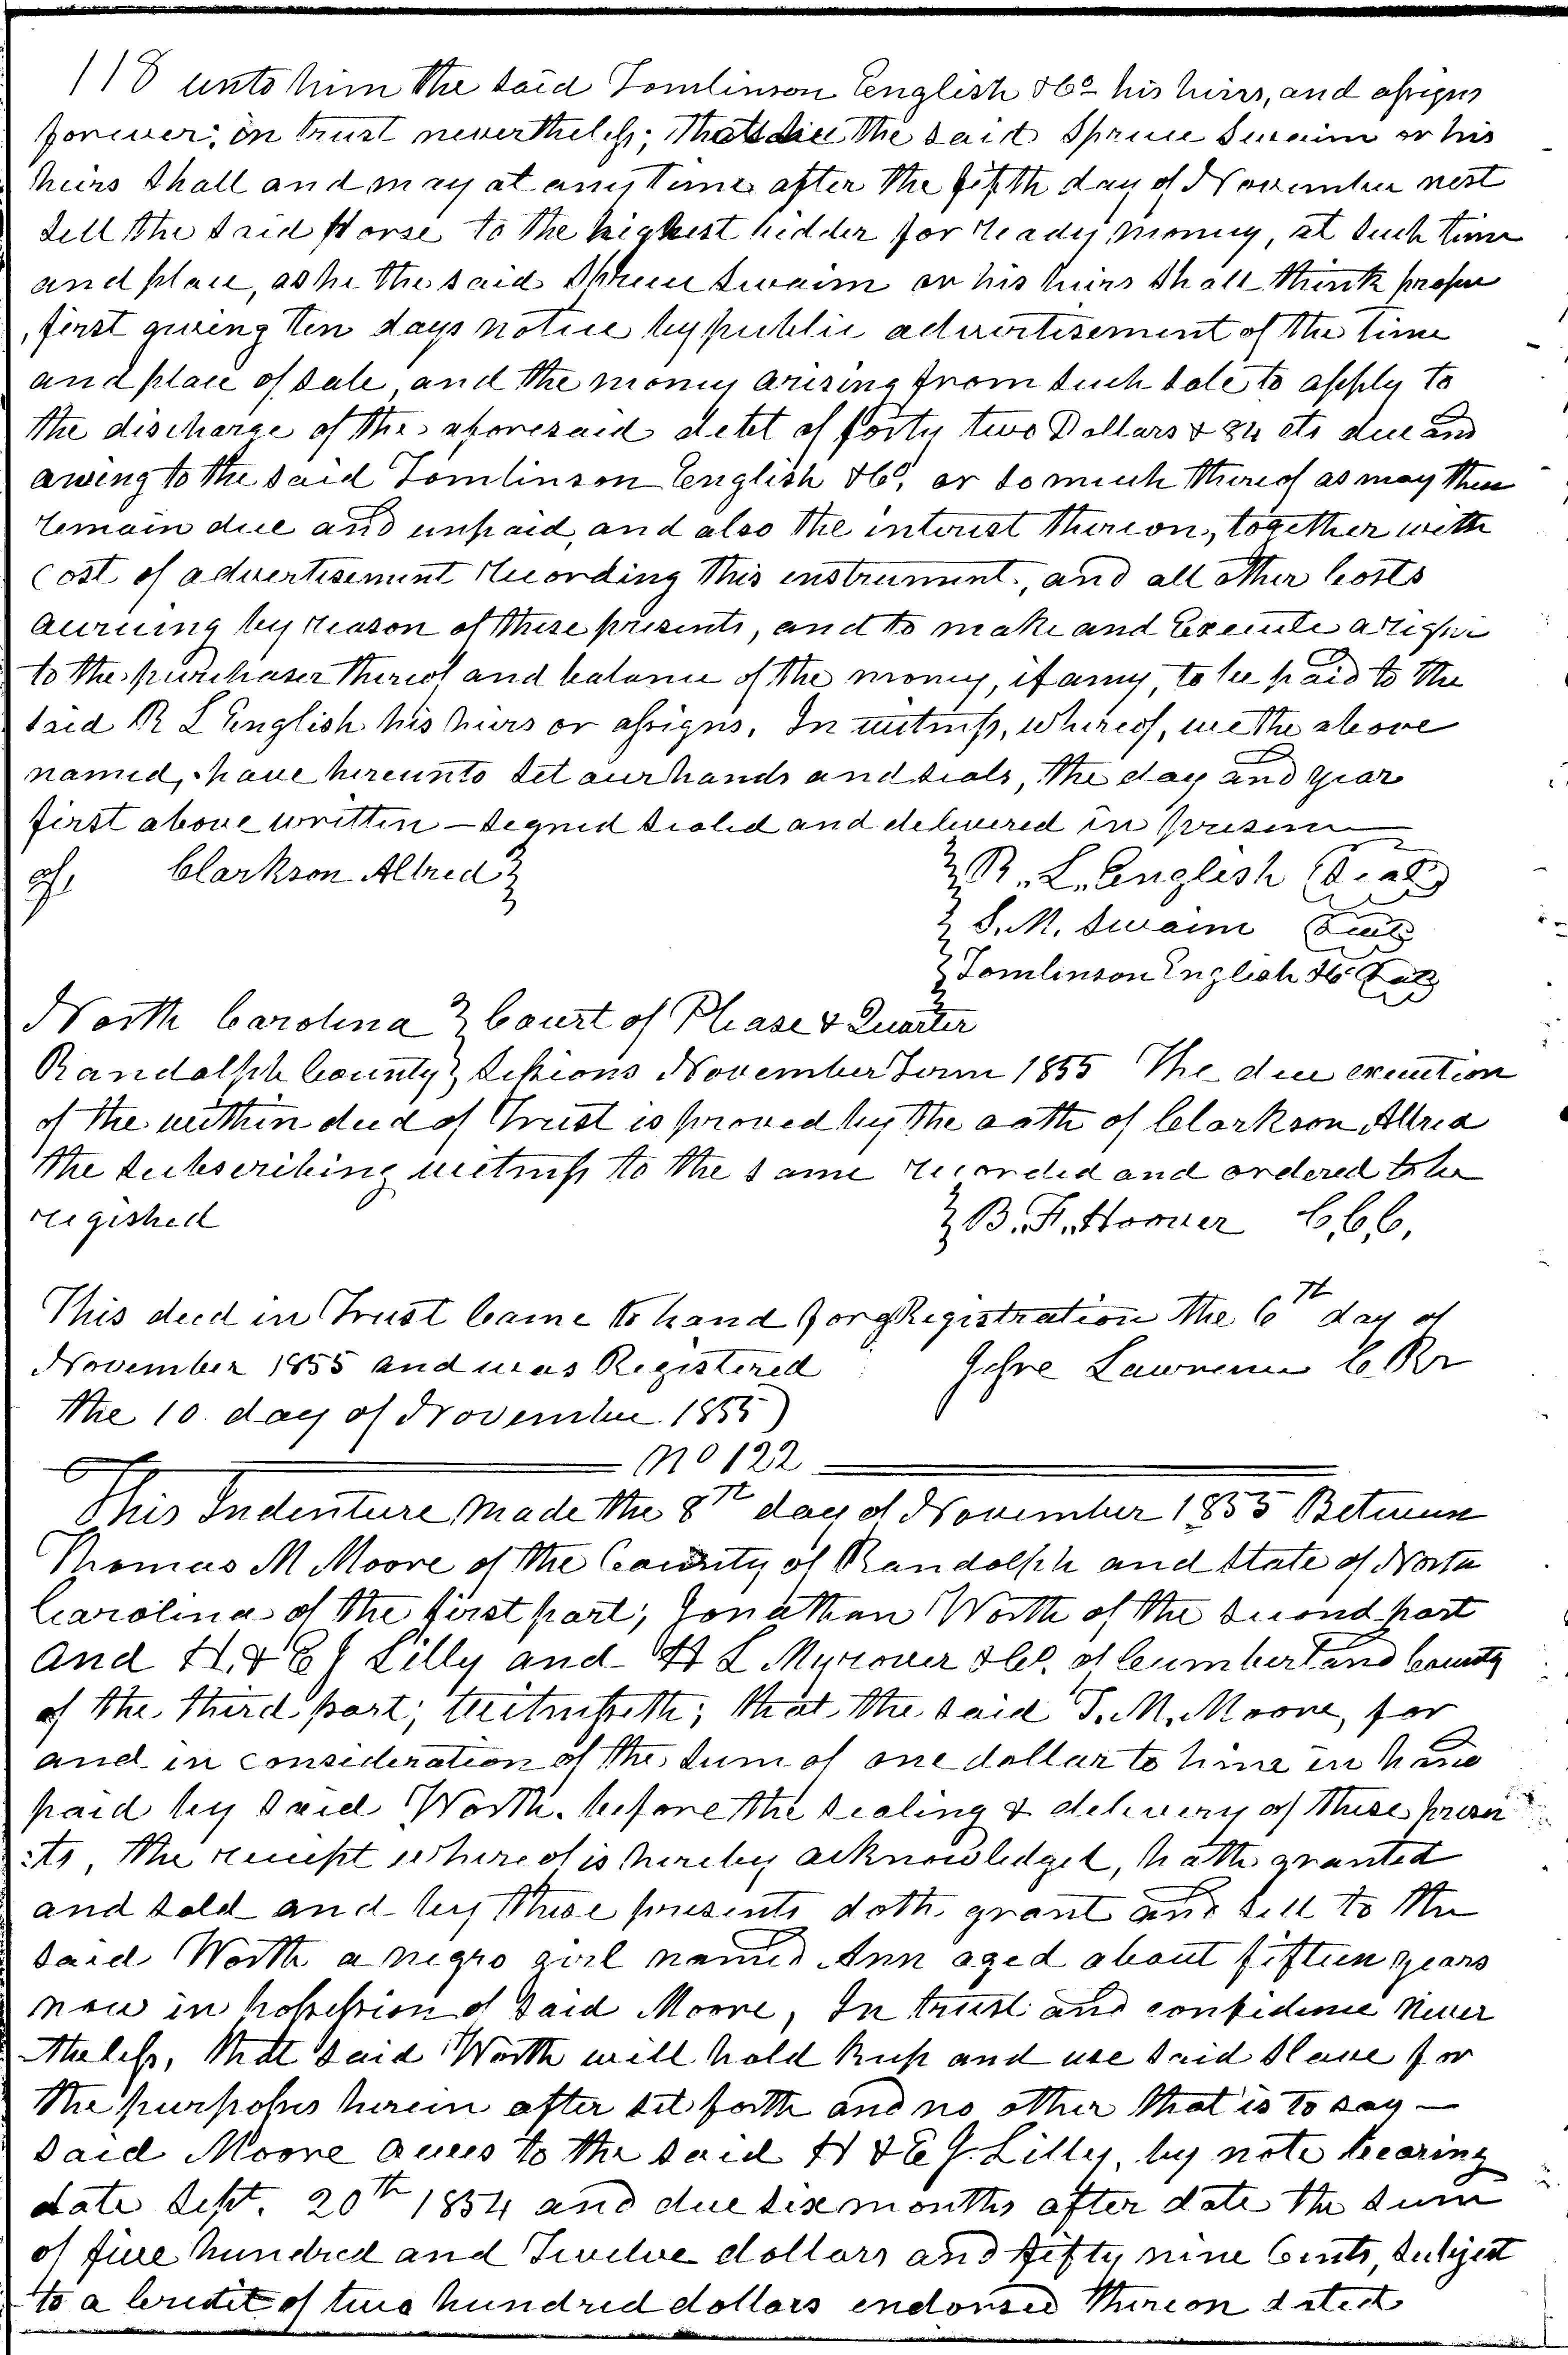 118 unto him the said Tomlinson English & Co his heirs, and assigns
forever; in trust nevertheless; that the said Spruce Swaim or his
heirs shall and may at any time after the fifth day of November next
sell the said Horse to the highest bidder for ready money, at such time
and place, as he the said Spruce Swaim or his heirs shall think proper
, first giving ten days notice by public advertisement of the time
and place of sale, and the money arising from such sale to apply to
the discharge of the aforesaid debt of forty two Dollars & 84 cts due and
owing to the said Tomlinson English & Co, or so much thereof as may then
remain due and unpaid, and also the interest thereon, together with
Cost of advertisement recording this instrument, and all other Costs
accruing by reason of these presents, and to make and Execute a
to the purchaser thereof and balance of the money, if any, to be paid to the
said R L English his heirs or assigns. In witness, whereof, we the above
named, have hereunto set our hands and seals, the day and year
first above written – Signed sealed and delivered in presence
of, Clarkson Allred R. L. English (Seal)
S. M. Swaim (Seal)
Tomlinson English & Co (Seal)
North Carolina } Court of Please & Quarter
Randolph County } Sessions November Term 1855 The due execution
of the within deed of Trust is proved by the oath of Clarkson Allred
the subscribing witness to the same recorded and ordered to be
registred B. F. Hoover C.C.C.
This deed in Trust Came to hand for Registration the 6th day of
November 1855 and was Registered Jehre Lawrence C Rr
the 10 day of November 1855)
No 122
This Indenture made the 8th day of November 1855 Between
Thomas M Moore of the County of Randolph and State of North
Carolina of the first part; Jonathan Worth of the second part
and H. & E J Lilly and H L Myrover & Co. of Cumberland County
of the third part; witnesseth; that the said T. M. Moore, for
and in consideration of the sum of one dollar to him in hand
paid by said Worth before the sealing & delivery of these presen
:ts, the receipt whereof is hereby acknowledged, hath granted
and sold and by these presents doth grant and sell to the
said Worth a negro girl named Ann aged about fifteen years
now in possession of said Moore, In trust and confidence never
theless, that said Worth will hold keep and use said slave for
the purposes herein after set forth and no other that is to say –
said Moore owes to the said H & E J. Lilly, by note bearing
date Sept. 20th 1854 and due six months after date the sum
of five hundred and Twelve dollars and fifty nine Cents, subject
to a Credit of two hundred dollars endorsed thereon dated